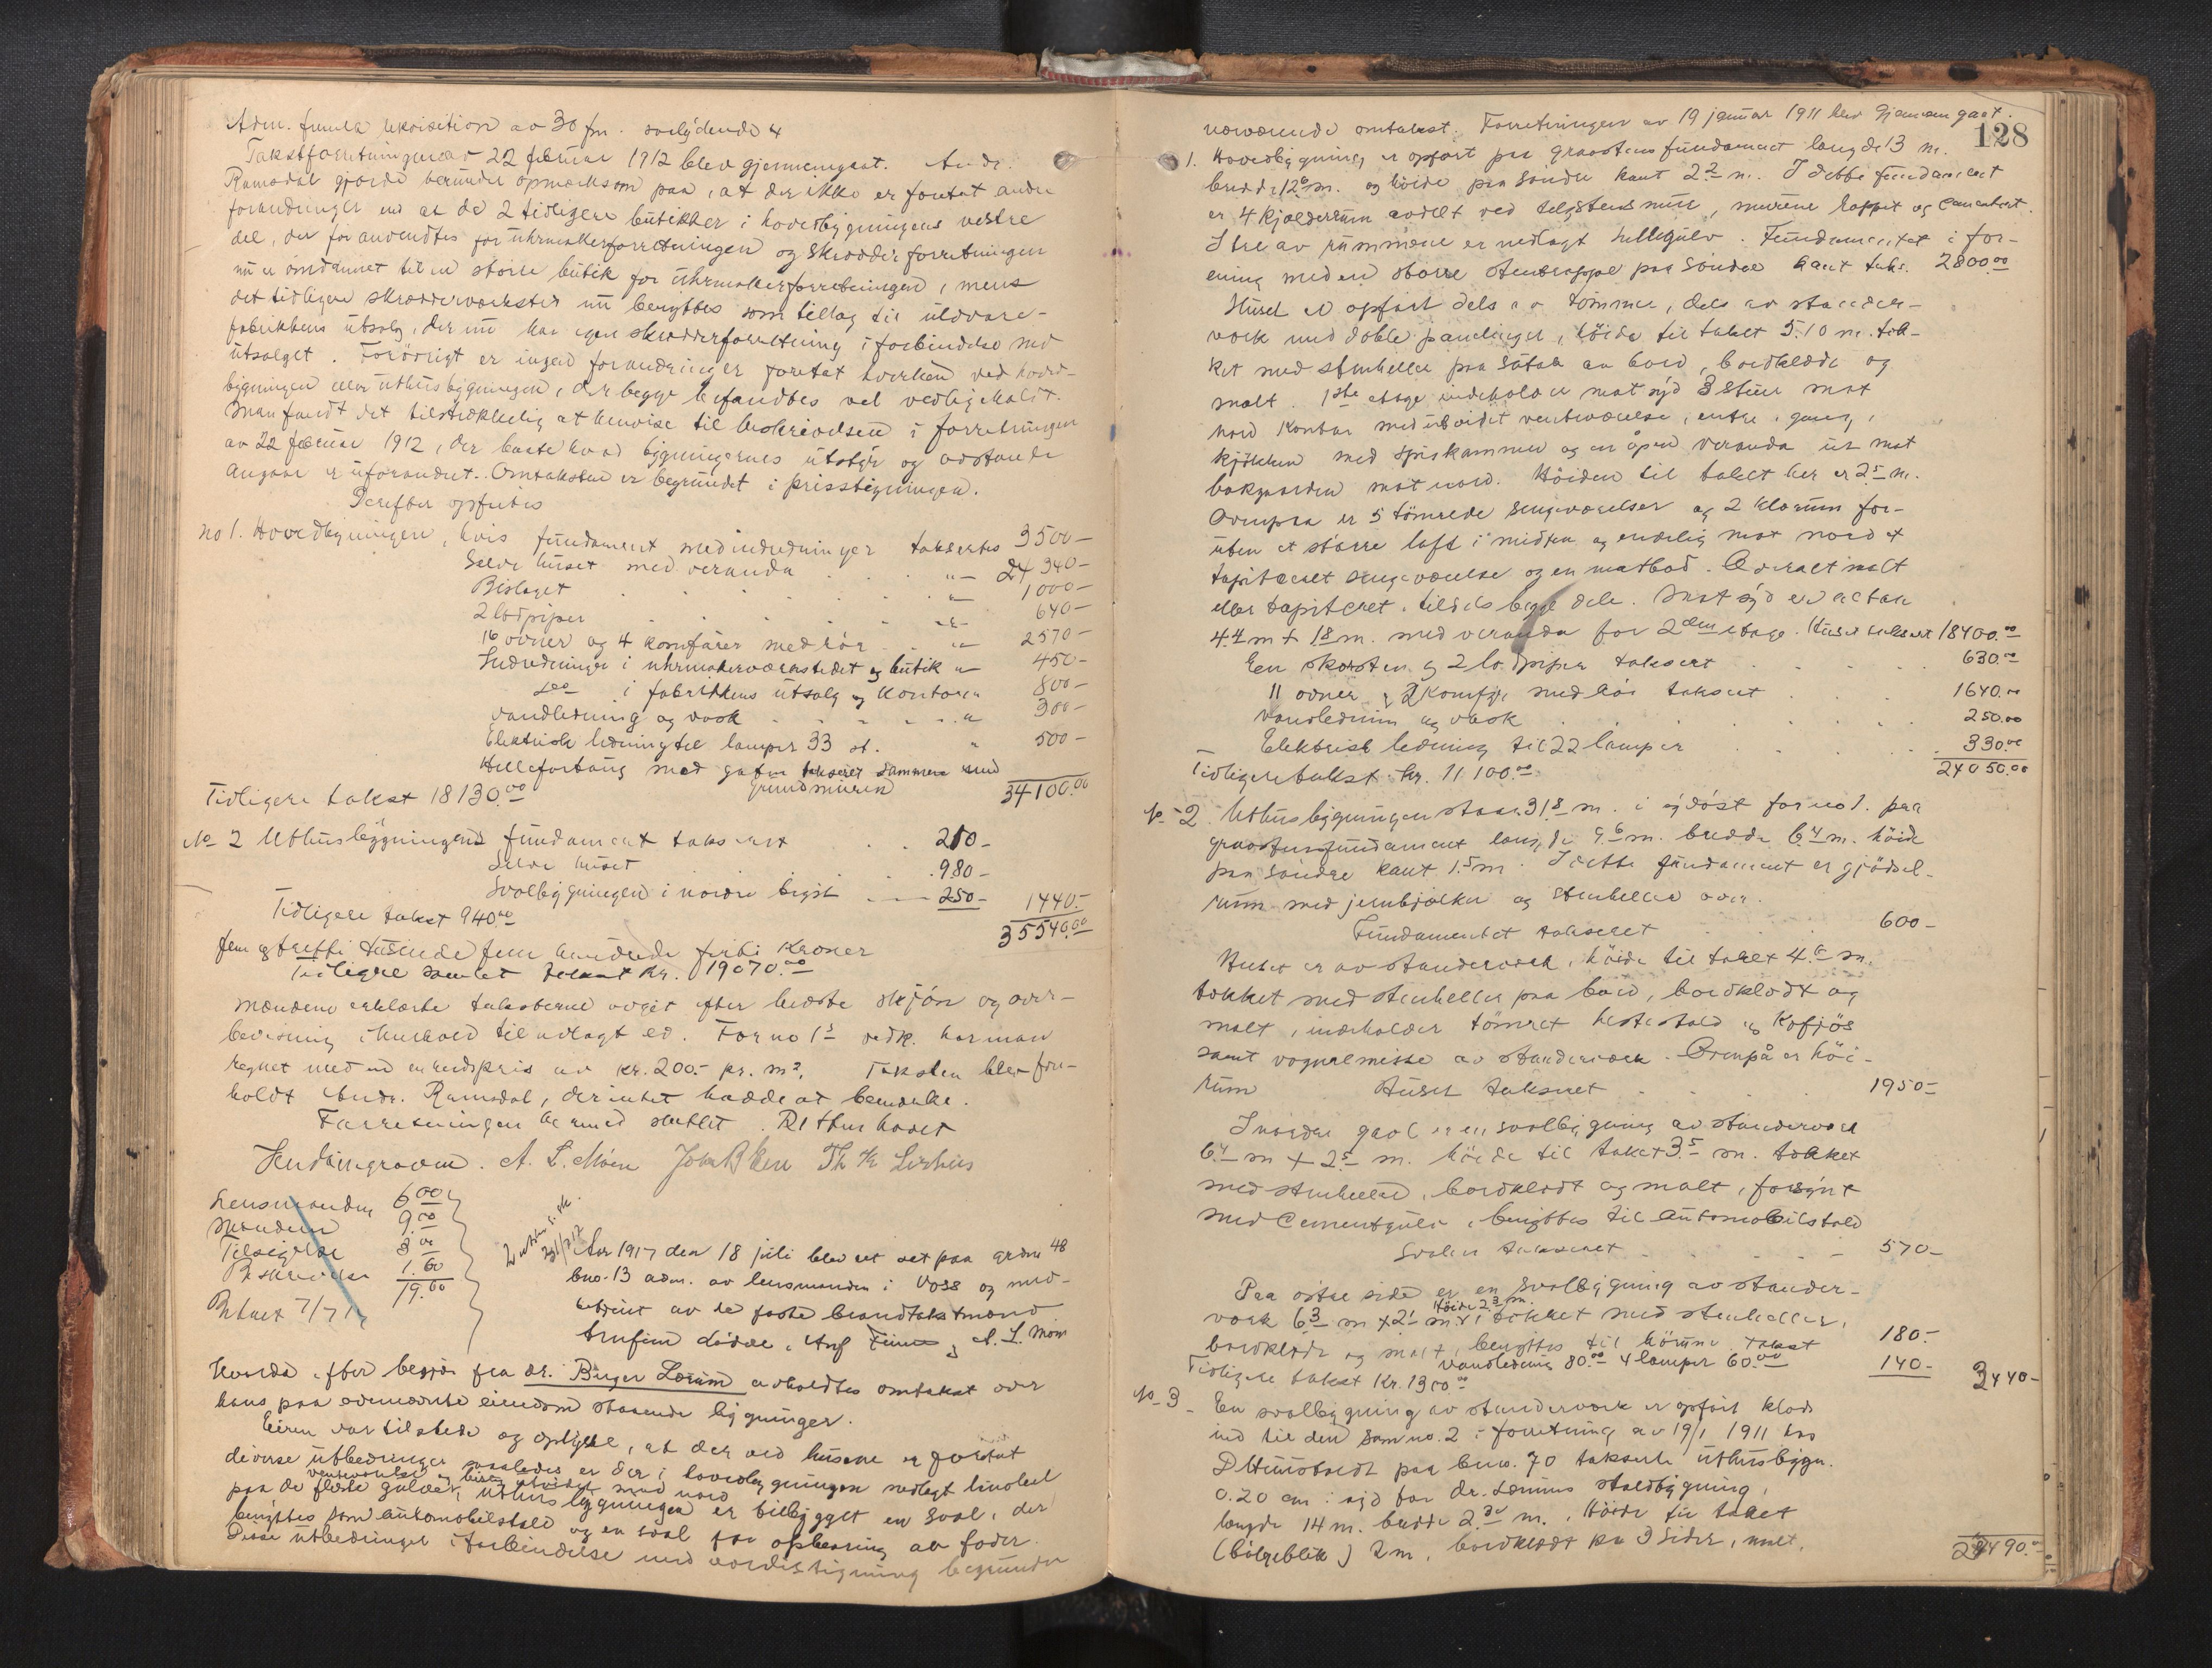 Adm. fremla rekvisition av 30 fm. saalydende 4
Takstforretningen av 22 februar 1912 blev gjennemgaat. Andr.
Ramsdal gjorde herunder opmerksom paa, at der ikke er foretat andre
forandringer end at de 2 tidligere butikker i hovedbygningens vestre
del, der før anvendtes for uhrmakerforretningen og skrædderforretningen
nu er omdannet til en større butik for uhrmakerforretningen, mens
det tidligere skrædderverksted nu benyttes som tillæg til uldvare-
fabrikkens utsalg, der nu har egen skrædderforretning i forbindelse med
utsalget. Forøvrigt er ingen forandringer foretat hverken ved hoved-
bygningen eller uthusbygningen, der begge befandtes vel vedlikeholdt.
Man fandt det tilstrekkelig at henvise til beskrivelsen i forretningen
av 22 februar 1912, der baate hvad bygningernes utstyr og avstande
angaar er uforandret. Omtaksten er begrundet i prisstigningen.
Derefter opførtes
no 1. Hovedbygningen, hvis fundament med indredninger taksertes 3500 —
Selve huset med veranda . . . " — 24 340 —
Bislaget . . . . . " — 1000 —
2 lodpiper . . . . . " — 640 —
16 ovner og 4 komfurer med rör . . " 2570 —
Indredninger i uhrmakerverkstedet og butik " 450 —
do i fabrikkens utsalg og kontorer " 800 —
Vandledning og vask . . . . . " 300 —
Elektrisk ledning til lamper 33 st. " 500 —
Hellefortaug mod gaten takseret sammen med
grundmuren
Tidligere takst 18130.00 34100.00
No 2 Uthusbyggningens fundament taksert . . 210 —
Selve huset . . 980 —
Svalbygningen i nordre 250 — 1440.—
Tidligere takst 940.00 35540.00
fem og tretti tusinde fem hundrede firti Kroner
Tidligere samlet takst kr. 19070.00
Mændene erklærte taksterne avgit efter bedste skjön og over-
bevisning i henhold til avlagt ed. For no 1 vedk. har man
regnet med en enhedspris av kr. 200.- pr. m². Taksten blev fore-
holdt Andr. Ramsdal, der intet hadde at bemerke.
Forretningen hermed sluttet. Rethen hævet
A. L. Moen
Lensmanden 6.00
Mændene 9.00
Tilsigelse 3.00
Beskrivelse 1.60
19.60
Betalt 7/7 17
Aar 1917 den 18 juli blev ret sat paa grdnr 48
bno. 13 adm. av lensmanden i Voss og med-
betjent av de faste brandtakstmænd
Arnfinn og A. L. Moen
Hvorda efter begjær fra dr. Birger Lærum avholdtes omtakst over
hans paa ovennævnte eiendom staaende bygninger.
Eieren var tilstede og oplyste, at der ved husene er foretat
diverse utbedringer saaledes er der i hovedbygningen nedlagt linoleum
venteværelse og utvidet mod nord
paa de fleste gulver, uthusbygningen er tilbygget en sval, der
benyttes som automobilstald og en sval for opbevaring av foder.
Disse utbedringer i forbindelse med værdistigning begrunder
128
nærværende omtakst. Forretningen av 19 januar 1911 blev gjennemgaat.
1. Hovedbygning er opført paa graastens fundament længde 13 m.
bredde 12.6 m. og höide paa söndre kant 2.2 m. I dette fundament
er 4 kjælderrum avdelt ved teglstensmur, murene rappet og cementert.
I tre av rummene er nedlagt hellegulv. Fundamentet i for-
ening med en større stentrappe paa söndre kant taks. 2800.00
Huset er opført dels av tömmer, dels av stænder-
verk med doble panelinger, höide til taket 5.10 m. tæk-
ket med stenheller paa sutak av bord, bordklædd og
malt. 1ste etage indeholder mot syd 3 stuer mot
nord kontor med utvidet venteværelse, entre, gang,
kjökken med spiskammer og en åpen veranda ut mot
bakgaarden mot nord. Höiden til taket her er 2.5 m.
Ovenpaa er 5 tömrede sengeværelser og 2 klærum for-
uten et större loft i midten og endelig mot nord et
tapitseret sengeværelse og en matbod. Overalt malt
eller tapitseret, tildels begge dele. Mot syd er
4.4 m + 1.8 m. med veranda for 2den etage. Huset taksert 18400.00
En skorsten og 2 lodpiper taksert . . . . 630.00
11 ovner og 2 komfyr med rör taksert . . . 1640.00
Vandledning og vask . . . . . . . 250.00
Elektrisk ledning til 22 lamper . . . . . 330.00
Tidligere takst kr. 11 100.00 24050.00
No 2. Uthusbygningen staar 31.8 m. i sydöst for no 1. paa
graastensfundament længde 9.6 m. bredde 6.4 m. höide
paa söndre kant 1.5 m. I dette fundament er gjödsel-
rum med jernbjelker og stenheller over.
Fundamentet takseret . . . 600 —
Huset er av stenderverk, höide til taket 4. m.
tækket med stenheller paa bord, bordklædt og
malt, indeholder tömret hestestald og kofjös
samt vognremisse av stenderverk. Ovenpå er höi-
rum Huset takseret . . . . 1950 —
I nordre gavl er en svalbygning av stenderverk
6.4 m + 2.5 m. höide til taket 3.5 m. tækket
med stenheller, bordklædt og malt, forsynt
med cementgulv, benyttes til automobilstald
Svalen takseret . . . . — 570 —
Paa östre side er en svalbygning av stender-
Höide 2.3 m.
verk 6.3 m + 2.1 m. tækket med stenheller,
bordklædt og malt, benyttes til hörum Takst 180.—
Vandledning 80.00 4 lamper 60.00 140 —
Tidligere takst Kr. 1300.00 3440 —
No 3 - En svalbygning av stenderverk er opfört klods
ind til den som no. 2 i forretning av 19/1 1911 hos
paa bno. 70 takserte uthusbygn.
0.20 cm i syd for dr. Lærums staldbygning,
længde 14 m. bredde 2. m., höide til taket
(bölgeblik) 2 m, bordklædt paa 3 sider, malt.